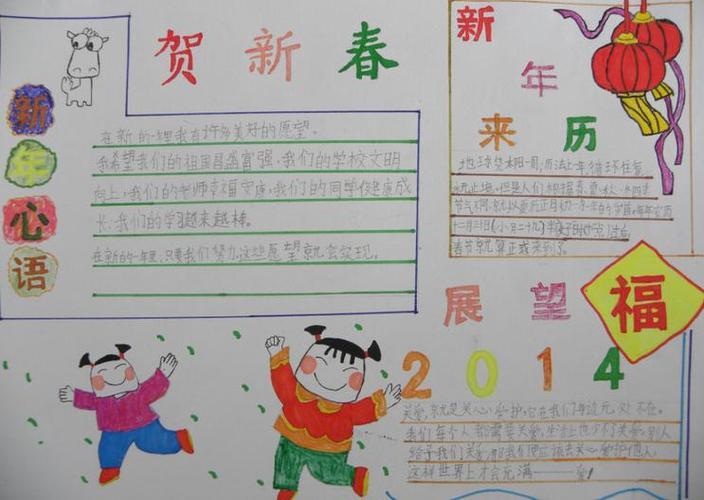 新年心语
贺新春
在新的一年里我有许多美好的愿望。
我希望我们的祖国昌盛富强，我们的学校文明
向上，我们的老师幸福安康，我们的同学健康成
长，我们的学习越来越棒。
在新的一年里，只要我们努力，这些愿望就会实现。
新年来历
地球绕太阳一周，历法上年，循环往复，
永无止境。但是人们根据春、夏、秋、冬四季
节气不同，就以夏历正月初一为一年的岁首。每年农历
十二月三十日(小月二十九)半夜子时(十二点)过后，
春节就算正式来到了。
福
展望
2014
关爱，就是关心爱护，它在我们身边无处不在。
我们每个人都需要关爱，生活上也少不了关爱，别人
给予我们关爱，我们便应该去关心爱护他人，
这样世界上才会充满——爱！